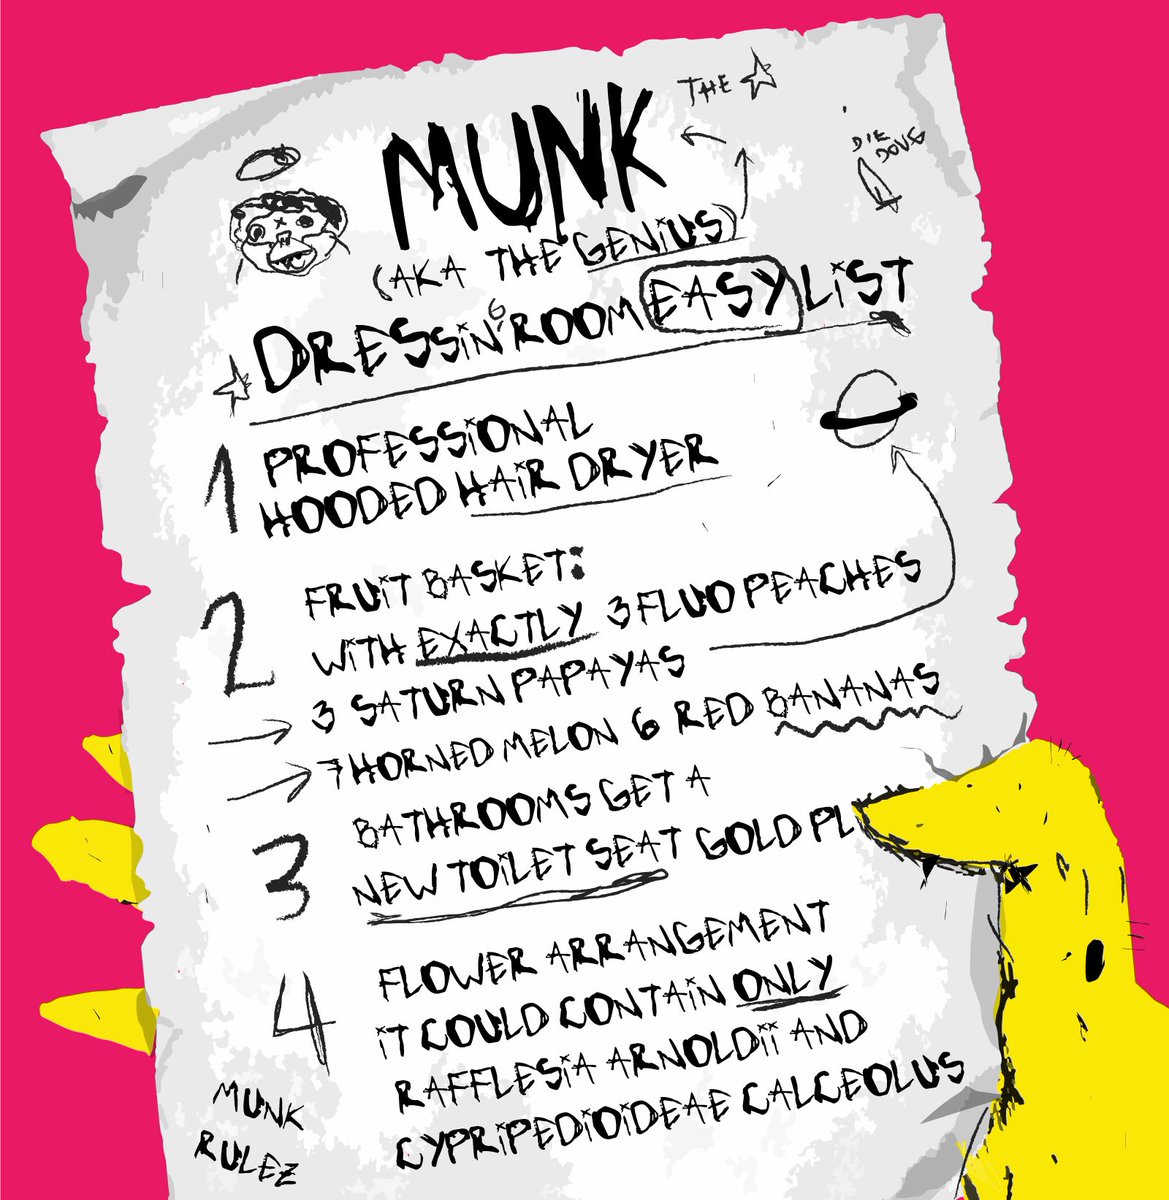 THE
MUNK
DIE
DOUG
(AKA THE GENIUS)
DRESSiNG ROOM EASY LiST
1 PROFESSiONAL
HOODED HAiR DRYER
2 FRUiT BASKET:
WiTH EXACTLY 3 FLUO PEACHES
3 SATURN PAPAYAS
7 HORNED MELON 6 RED BANANAS
3 BATHROOMS GET A
NEW TOiLET SEAT GOLD PL
4 FLOWER ARRANGEMENT
iT COULD CONTAiN ONLY
RAFFLESiA ARNOLDii AND
CYPRiPEDiOiDEAE CALCEOLUS
MUNK
RULEZ